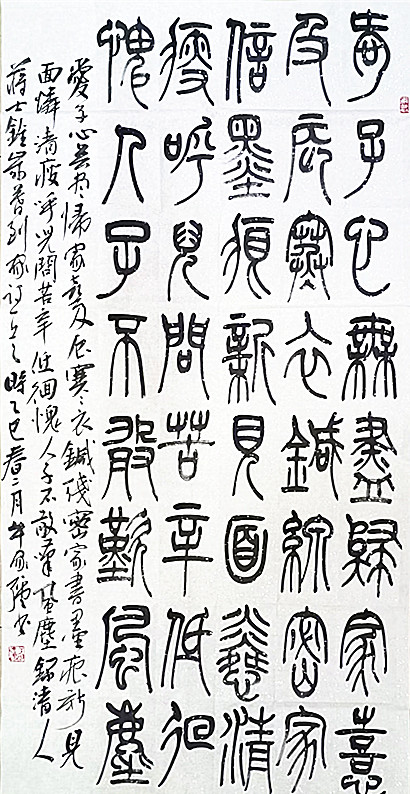 愛子心無盡歸家喜
及辰寒衣鍼綫密家
信墨痕新見面憐清
瘦呼兒問苦辛低徊
愧人子不敢歎風塵
愛子心無盡歸家喜及辰寒衣鍼綫密家書墨痕新見
面憐清瘦呼兒問苦辛低徊愧人子不敢嘆風塵錄清人
蔣士銓歲暮到家詩一首時乙巳春二月書